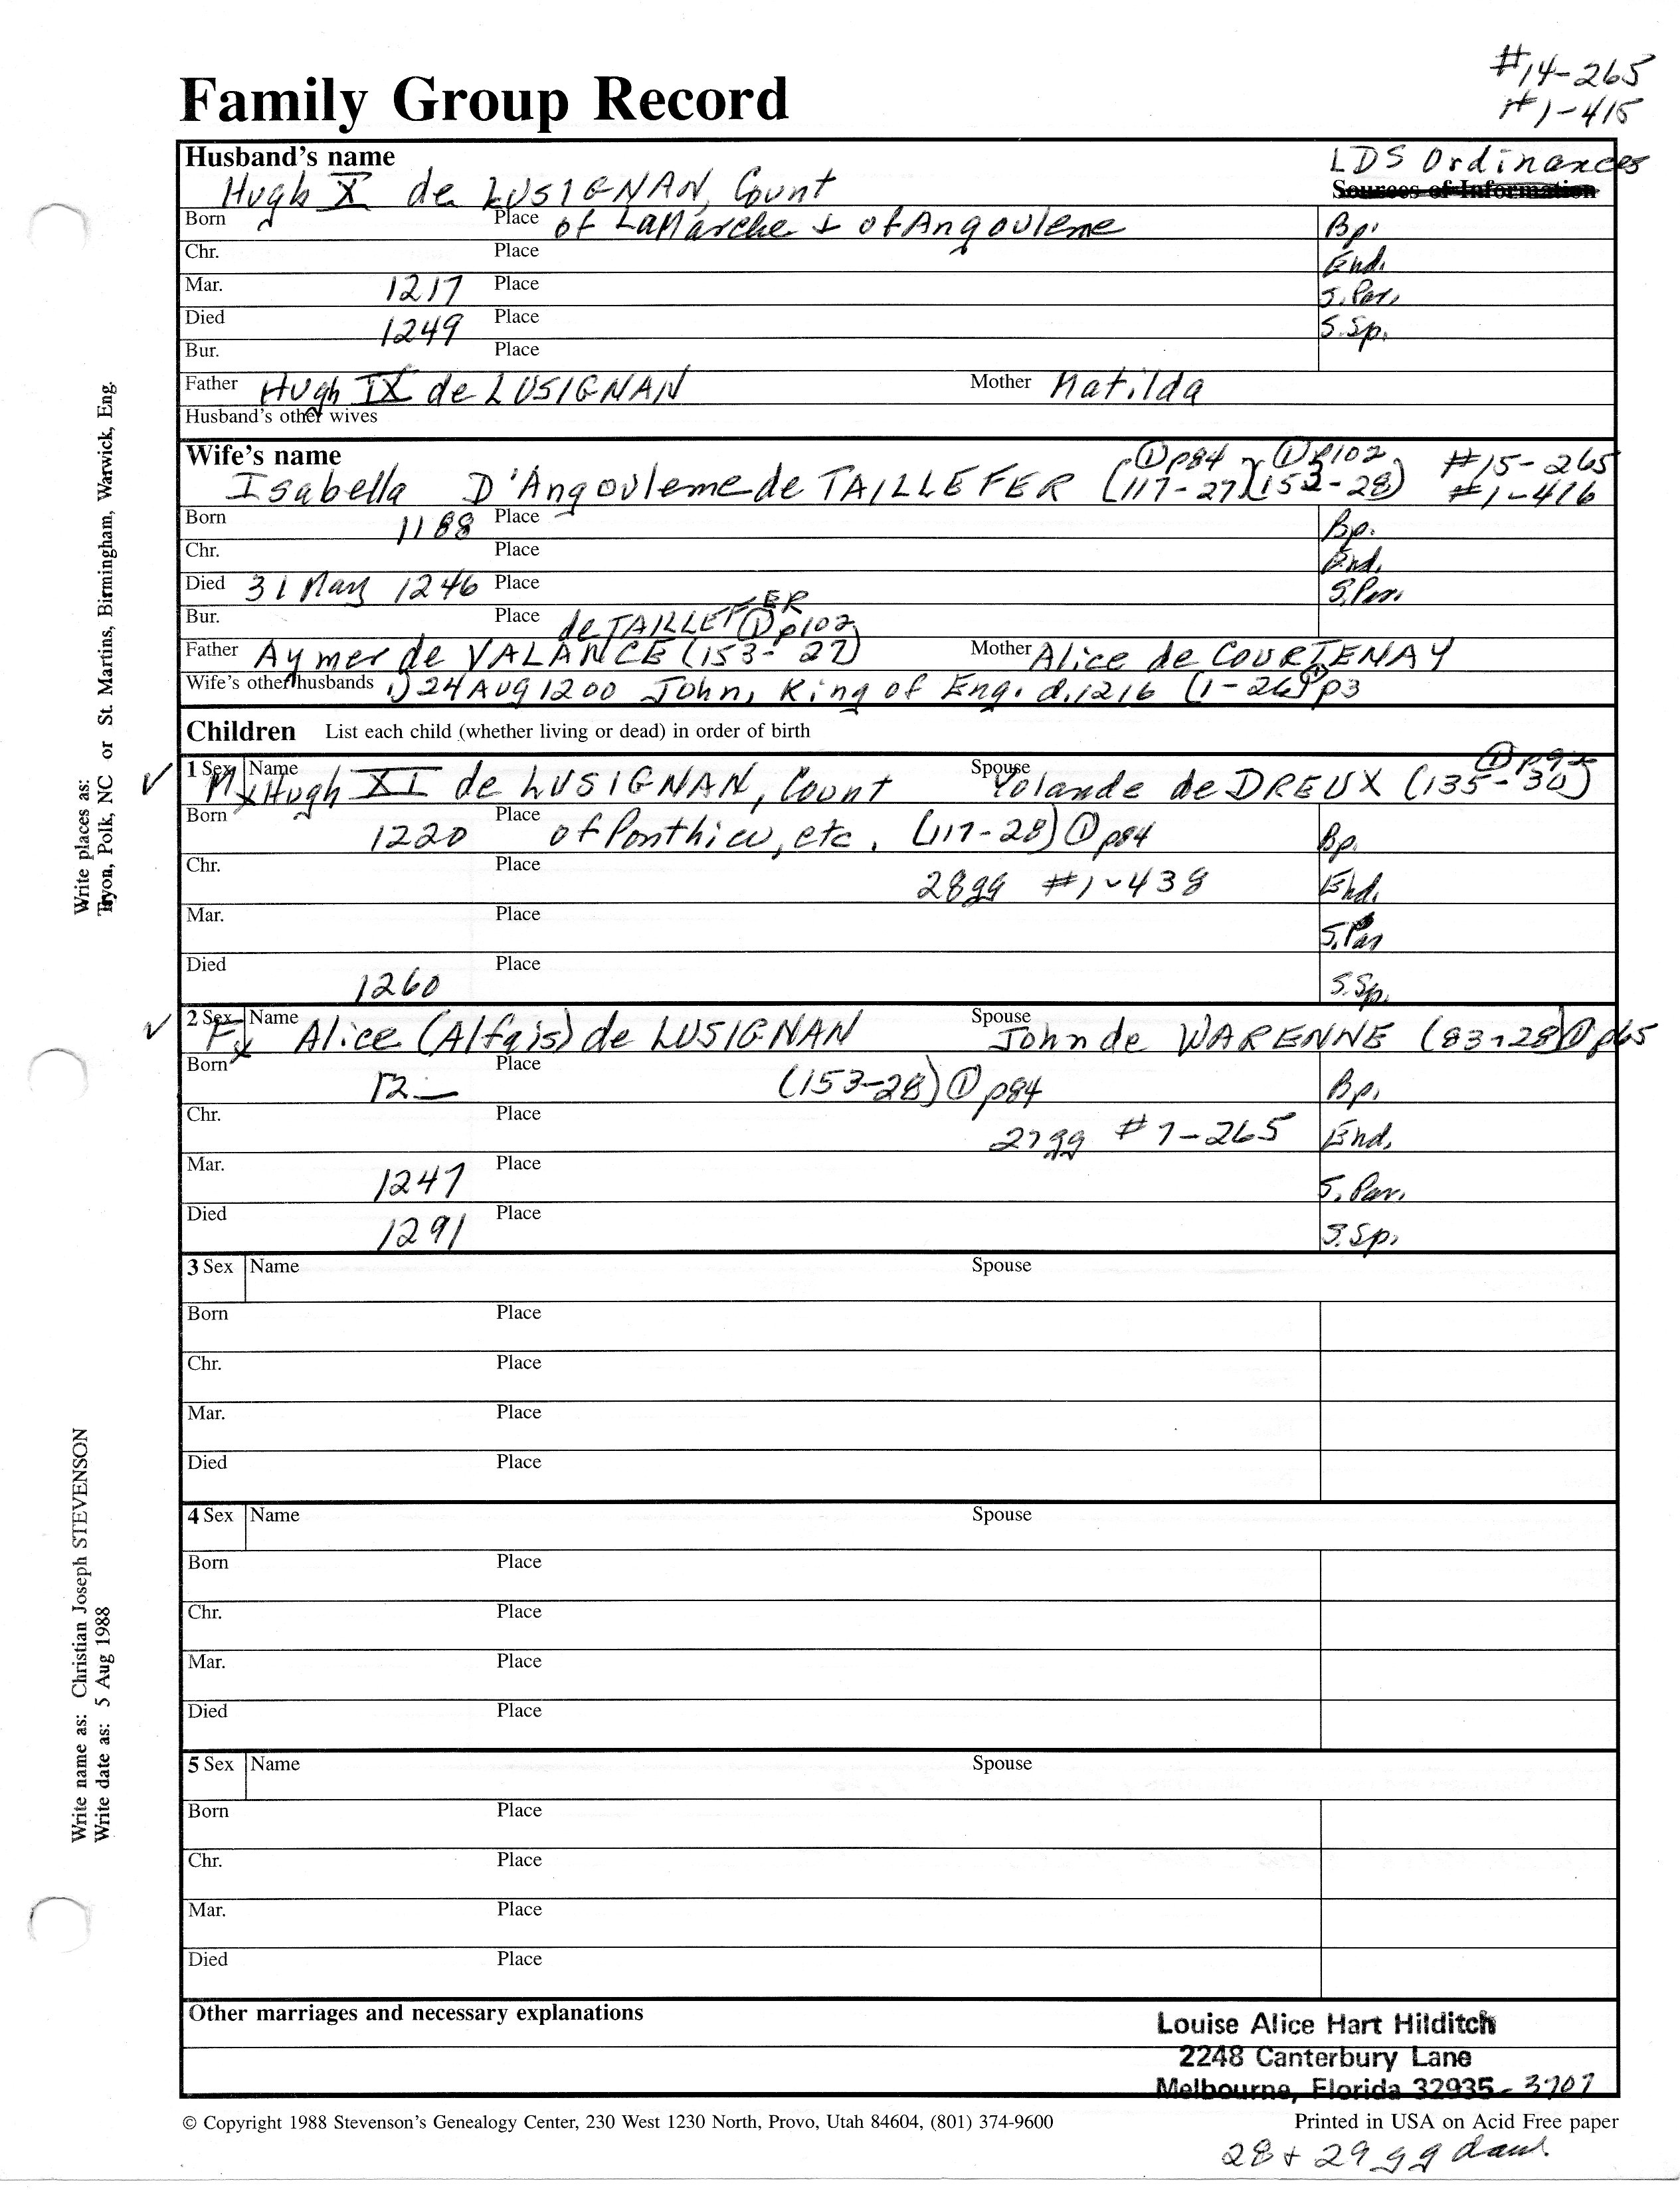 #14-265
#1-415
Family Group Record
Husband's name
LDS Ordinances
Sources of Information
Hugh X de LUSIGNAN, Count
Born Place of LaMarche & of Angouleme Bp.
Chr. Place End.
Mar. 1217 Place S. Par.
Died 1249 Place S. Sp.
Bur. Place
Father Hugh IX de LUSIGNAN Mother Matilda
Husband's other wives
Wife's name ① p84 ① p102 #15-265
Isabella D'Angouleme de TAILLEFER (117-27)(153-28) #1-416
Born 1188 Place Bp.
Chr. Place End.
Died 31 May 1246 Place S. Par.
Bur. Place de TAILLEFER ① p102
Father Aymer de VALANCE (153-27) Mother Alice de COURTENAY
Wife's other husbands 1) 24 AUG 1200 John, King of Eng. d. 1216 (1-26) ① p3
Children List each child (whether living or dead) in order of birth
✓ 1 Sex M x Name Hugh XI de LUSIGNAN, Count Spouse Yolande de DREUX (135-30) ①
Born 1220 Place of Ponthieu, etc. (117-28) ① p84 Bp.
Chr. Place 28gg #1-438 End.
Mar. Place S. Par
Died 1260 Place S. Sp.
✓ 2 Sex F x Name Alice (Alfais) de LUSIGNAN Spouse John de WARENNE (83-28) ① p65
Born 12— Place (153-28) ① p84 Bp.
Chr. Place 27gg #7-265 End.
Mar. 1247 Place S. Par.
Died 1291 Place S. Sp.
3 Sex Name Spouse
Born Place
Chr. Place
Mar. Place
Died Place
4 Sex Name Spouse
Born Place
Chr. Place
Mar. Place
Died Place
5 Sex Name Spouse
Born Place
Chr. Place
Mar. Place
Died Place
Other marriages and necessary explanations
Louise Alice Hart Hilditch
2248 Canterbury Lane
Melbourne, Florida 32935-3707
© Copyright 1988 Stevenson's Genealogy Center, 230 West 1230 North, Provo, Utah 84604, (801) 374-9600 Printed in USA on Acid Free paper
28 + 29 gg dau.
Write places as:
Tryon, Polk, NC or St. Martins, Birmingham, Warwick, Eng.
Write name as: Christian Joseph STEVENSON
Write date as: 5 Aug 1988